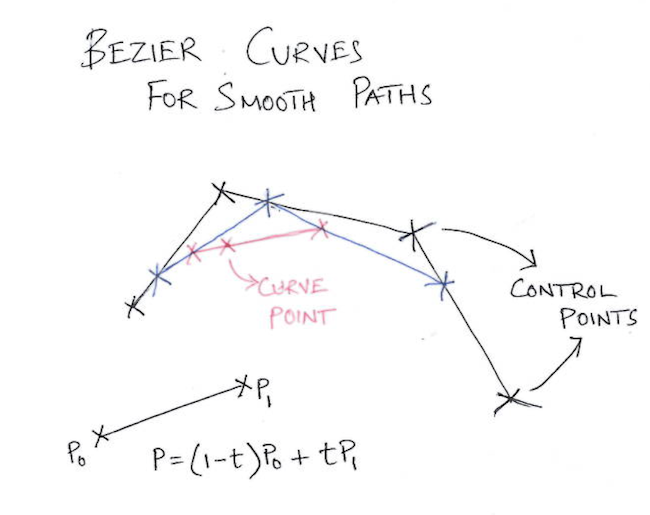 BEZIER CURVES
FOR SMOOTH PATHS
CURVE
POINT
CONTROL
POINTS
P₁
P₀
P=(1-t)P₀ + tP₁